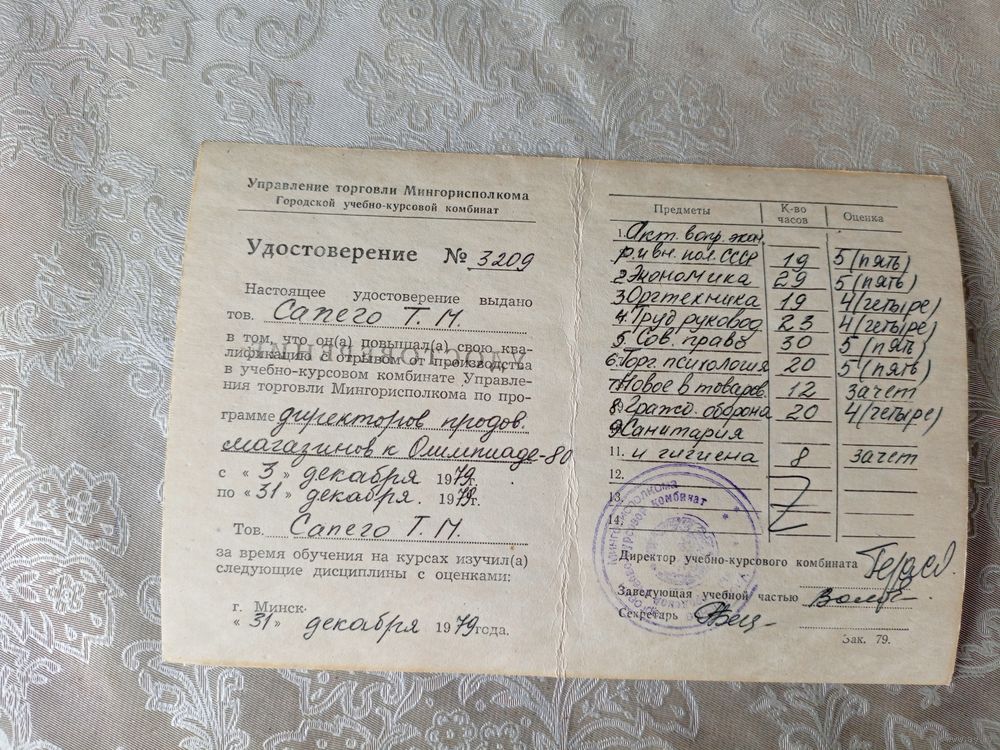 Управление торговли Мингорисполкома
Городской учебно-курсовой комбинат
Удостоверение № 3209
Настоящее удостоверение выдано
тов. Сапего Т. М.
в том, что он(а) повышал(а) свою ква-
лификацию с отрывом от производства
в учебно-курсовом комбинате Управле-
ния торговли Мингорисполкома по про-
грамме директоров продов.
магазинов к Олимпиаде-80
с « 3 » декабря 1979г.
по « 31 » декабря. 1979г.
Тов. Сапего Т. М.
за время обучения на курсах изучил(а)
следующие дисциплины с оценками:
г. Минск.
« 31 » декабря 1979года.
Предметы К-во часов Оценка
1. Акт. вопр. экон.
р. и вн. пол. СССР 19 5 (пять)
2 Экономика 29 5 (пять)
3 Оргтехника 19 4 (четыре)
4. Труд руковод 23 4 (четыре)
5 Сов. право 30 5 (пять)
6. Торг. психология 20 5 (пять)
7. Новое в товаров. 12 зачет
8) Гражд. оборона 20 4 (четыре)
9 Санитария
11. и гигиена 8 зачет
12.
13.
14.
Директор учебно-курсового комбината
Заведующая учебной частью
Секретарь
Зак. 79.